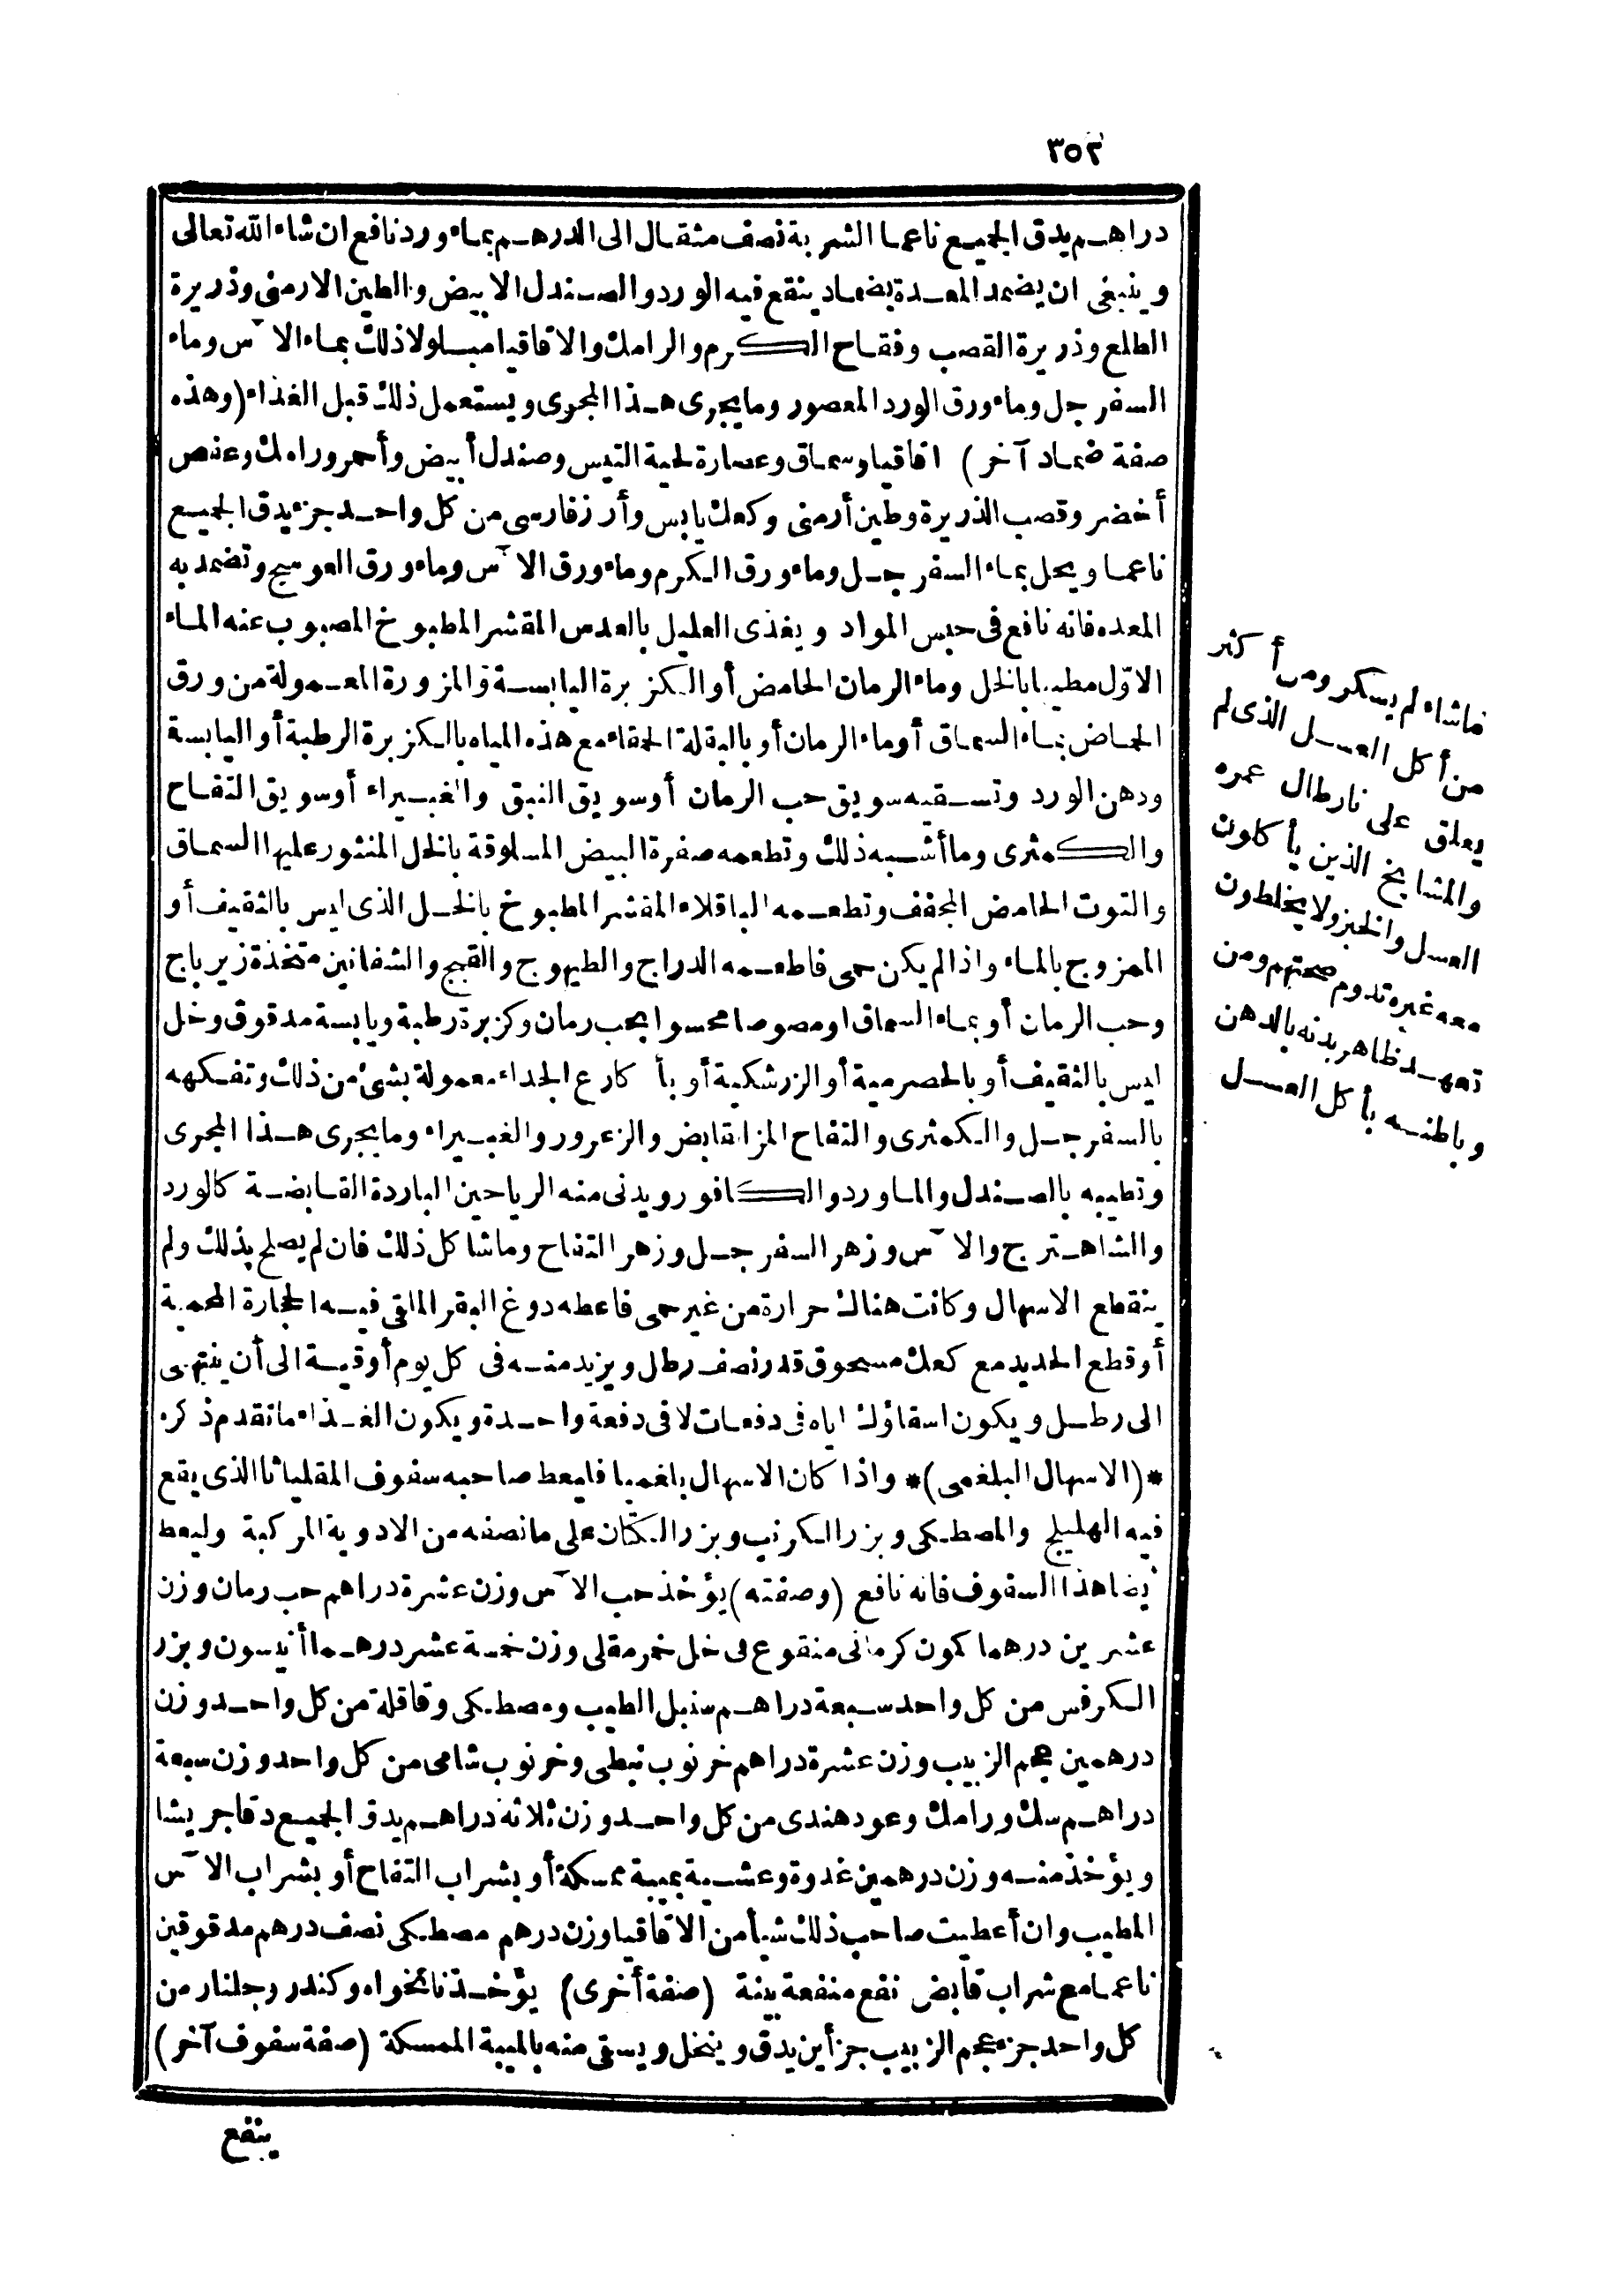 ٣٥٢
دراهم يدق الجميع ناعما الشربة نصف مثقال الى الدرهم بماء ورد نافع ان شاء الله تعالى
وينبغى ان يضمد المعدة بضماد ينقع فيه الورد والصندل الابيض والطين الارمنى وذريرة
الطلع وذريرة القصب وفقاح الكرم والرامك والاقاقيا مبلولا ذلك بماء الآس وماء
السفرجل وماء ورق الورد المعصور وما يجرى هذا المجرى ويستعمل ذلك قبل الغذاء (وهذه
صفة ضماد آخر) اقاقيا وسماق وعصارة لحية التيس وصندل أبيض وأحمر ورامك وعفص
أخضر وقصب الذريرة وطين أرمنى وكعك يابس وأرز فارسى من كل واحد جزء يدق الجميع
ناعما ويحل بماء السفرجل وماء ورق الكرم وماء ورق الآس وماء ورق العوسج وتضمد به
المعده فانه نافع فى حبس المواد ويغذى العليل بالعدس المقشر المطبوخ المصبوب عنه الماء
الاوّل مطيبا بالخل وماء الرمان الحامض أو الكزبرة اليابسة والمزورة المعمولة من ورق
الحماض بماء السماق أو ماء الرمان أو بالبقلة الحمقاء مع هذه المياه بالكزبرة الرطبة أو اليابسة
ودهن الورد وتسقيه سويق حب الرمان أو سويق النبق والغبيراء أو سويق التفاح
والكمثرى وما أشبه ذلك وتطعمه صفرة البيض المسلوقة بالخل المنثور عليها السماق
والتوت الحامض المجفف وتطعمه الباقلاء المقشر المطبوخ بالخل الذى ليس بالثقيف أو
الممزوج بالماء واذا لم يكن حمى فاطعمه الدراج والطيهوج والقبج والشفانين متخذة زيرباج
وحب الرمان أو بماء السماق او مصوصا محسوا بحب رمان وكزبرة رطبة ويابسة مدقوق وخل
ليس بالثقيف أو بالحصرمية أو الزرشكية أو بأكارع الجداء معمولة بشئ من ذلك وتفكهه
بالسفرجل والكمثرى والتفاح المز القابض والزعرور والغبيراء وما يجرى هذا المجرى
وتطيبه بالصندل والماورد والكافور ويدنى منه الرياحين الباردة القابضة كالورد
والشاهترج والآس وزهر السفرجل وزهر التفاح وما شاكل ذلك فان لم يصلح بذلك ولم
ينقطع الاسهال وكانت هناك حرارة من غير حمى فاعطه دوغ البقر الملقى فيه الحجارة المحمية
أو قطع الحديد مع كعك مسحوق قدر نصف رطل ويزيد منه فى كل يوم أوقية الى أن ينتهى
الى رطل ويكون اسقاؤك اياه فى دفعات لا فى دفعة واحدة ويكون الغذاء ما تقدم ذكره
*(الاسهال البلغمى)* واذا كان الاسهال بلغميا فليعط صاحبه سفوف المقلياثا الذى يقع
فيه الهليلج والمصطكى وبزر الكرنب وبزر الكتّان على ما نصفه من الادوية المركبة وليعط
أيضا هذا السفوف فانه نافع (وصفته) يؤخذ حب الآس وزن عشرة دراهم حب رمان وزن
عشرين درهما كمون كرمانى منقوع فى خل خمر مقلى وزن خمسة عشر درهما أنيسون وبزر
الكرفس من كل واحد سبعة دراهم سنبل الطيب ومصطكى وقاقلة من كل واحد وزن
درهمين عجم الزبيب وزن عشرة دراهم خرنوب نبطى وخرنوب شامى من كل واحد وزن سبعة
دراهم سك ورامك وعود هندى من كل واحد وزن ثلاثة دراهم يدق الجميع دقا جريشا
ويؤخذ منه وزن درهمين غدوة وعشية بميبة ممسكة أو بشراب التفاح أو بشراب الآس
المطيب وان أعطيت صاحب ذلك شيأ من الاقاقيا وزن درهم مصطكى نصف درهم مدقوقين
ناعما مع شراب قابض نفع منفعة بينة (صفة أخرى) يؤخذ نانخواه وكندر وجلنار من
كل واحد جزء عجم الزبيب جزأين يدق وينخل ويسقى منه بالميبة الممسكة (صفة سفوف آخر)
ينقع
ماشاء لم يسكر ومن أكثر
من أكل العسل الذى لم
يعلق على نار طال عمره
والمشايخ الذين يأكلون
العسل والخبز ولا يخلطون
معه غيره تدوم صحتهم ومن
تعهد ظاهر بدنه بالدهن
وباطنه بأكل العسل